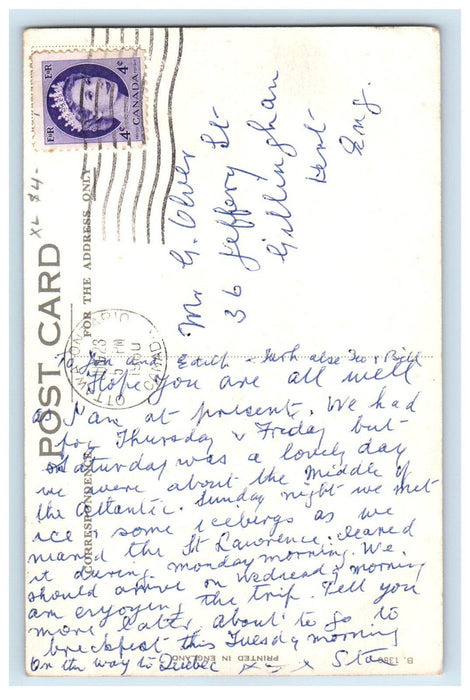 POST CARD
CORRESPONDENCE
FOR THE ADDRESS ONLY
XL $4-
E II R
E II R
4¢
4¢
CANADA
OTTAWA ONTARIO
5 PM
CANADA
Mr G. Olver
36 Jeffery St
Gillingham
Kent
Eng.
To and Edith - also & Bill
Hope you are all well
as I am at present. We had
fog Thursday & Friday but
Saturday was a lovely day
we were about the middle of
the Atlantic. Sunday night we met
ice & some icebergs as we
neared the St Lawrence, cleared
it during monday morning. We
should arrive on wednesday morning
am enjoying the trip. Tell you
more later about to go to
breakfast this Tuesday morning
on the way to Quebec x x x Stan
B. 1386
PRINTED IN ENGLAND